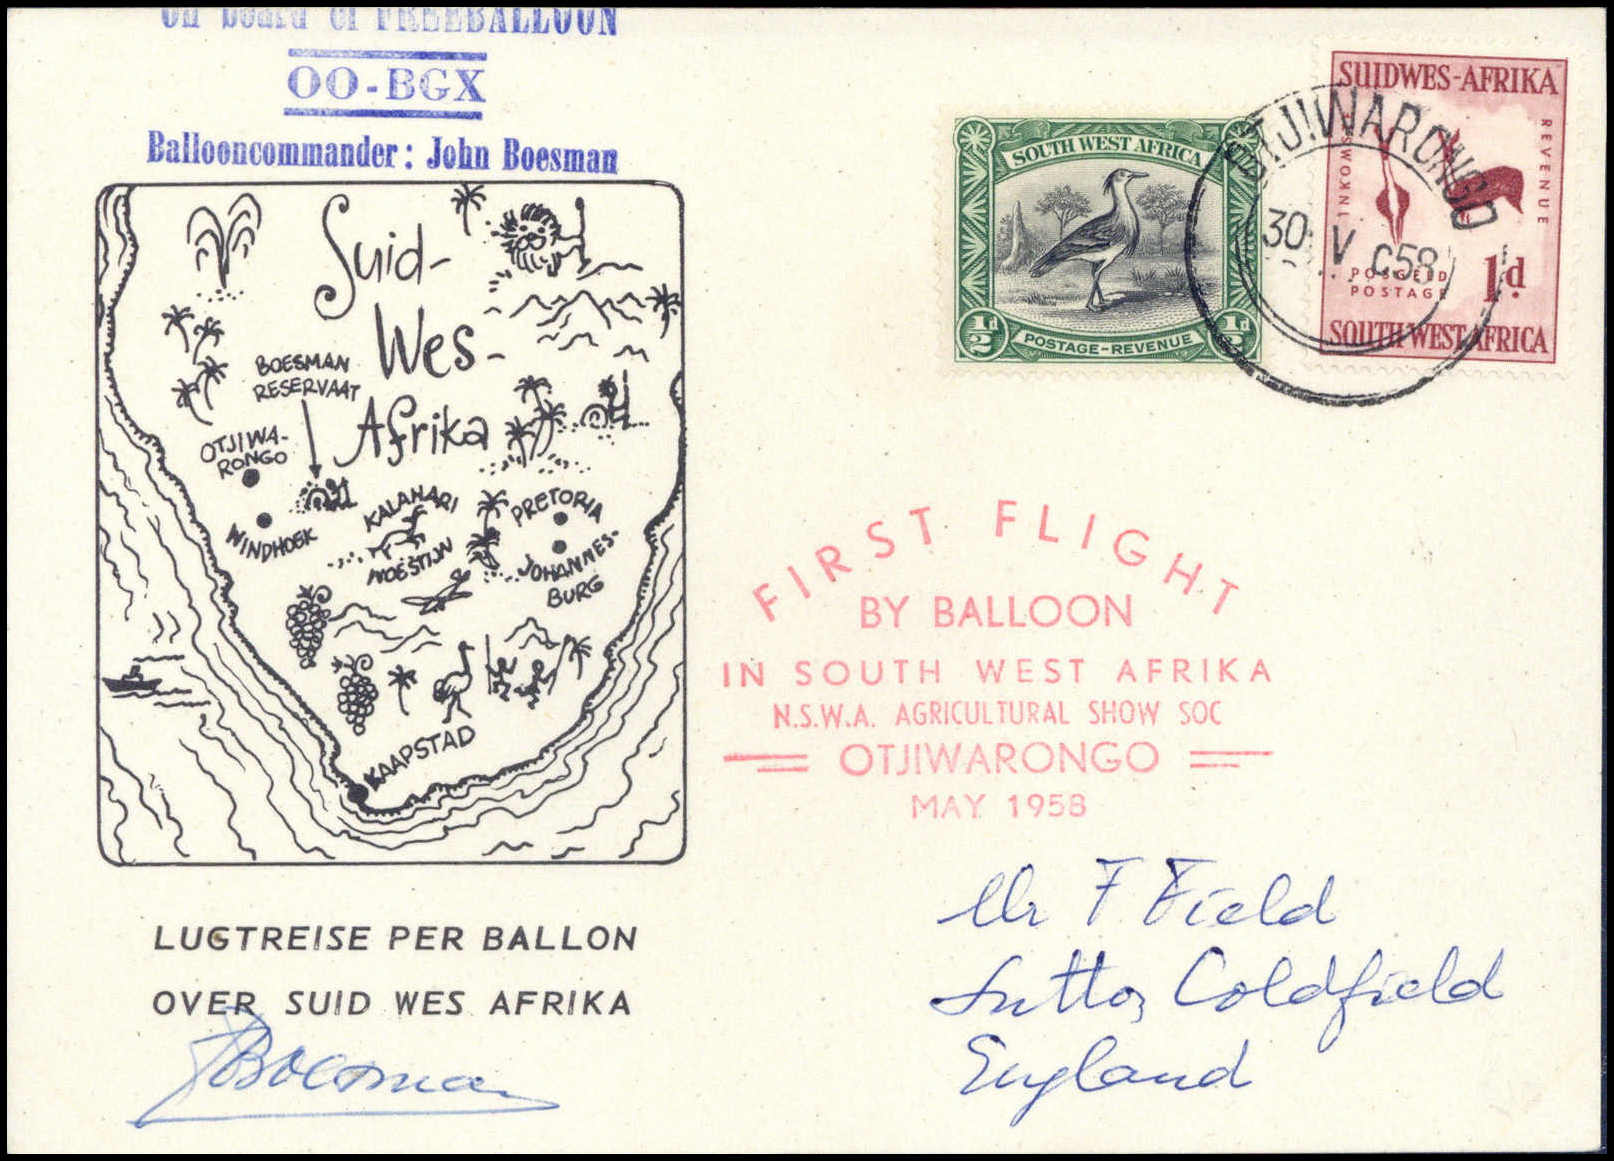 on board of FREEBALLOON
OO-BGX
Ballooncommander: John Boesman
SOUTH WEST AFRICA
½d
½d
POSTAGE-REVENUE
SUIDWES-AFRIKA
INKOMSTE
REVENUE
POSGELD
POSTAGE
1d.
SOUTH WEST AFRICA
OTJIWARONGO
30 V C58
Suid-
Wes-
Afrika
BOESMAN
RESERVAAT
OTJIWA-
RONGO
WINDHOEK
KALAHARI
WOESTIJN
PRETORIA
JOHANNES-
BURG
KAAPSTAD
FIRST FLIGHT
BY BALLOON
IN SOUTH WEST AFRIKA
N.S.W.A. AGRICULTURAL SHOW SOC
OTJIWARONGO
MAY 1958
LUGTREISE PER BALLON
OVER SUID WES AFRIKA
JBoesman
Mr F Field
Sutton Coldfield
England